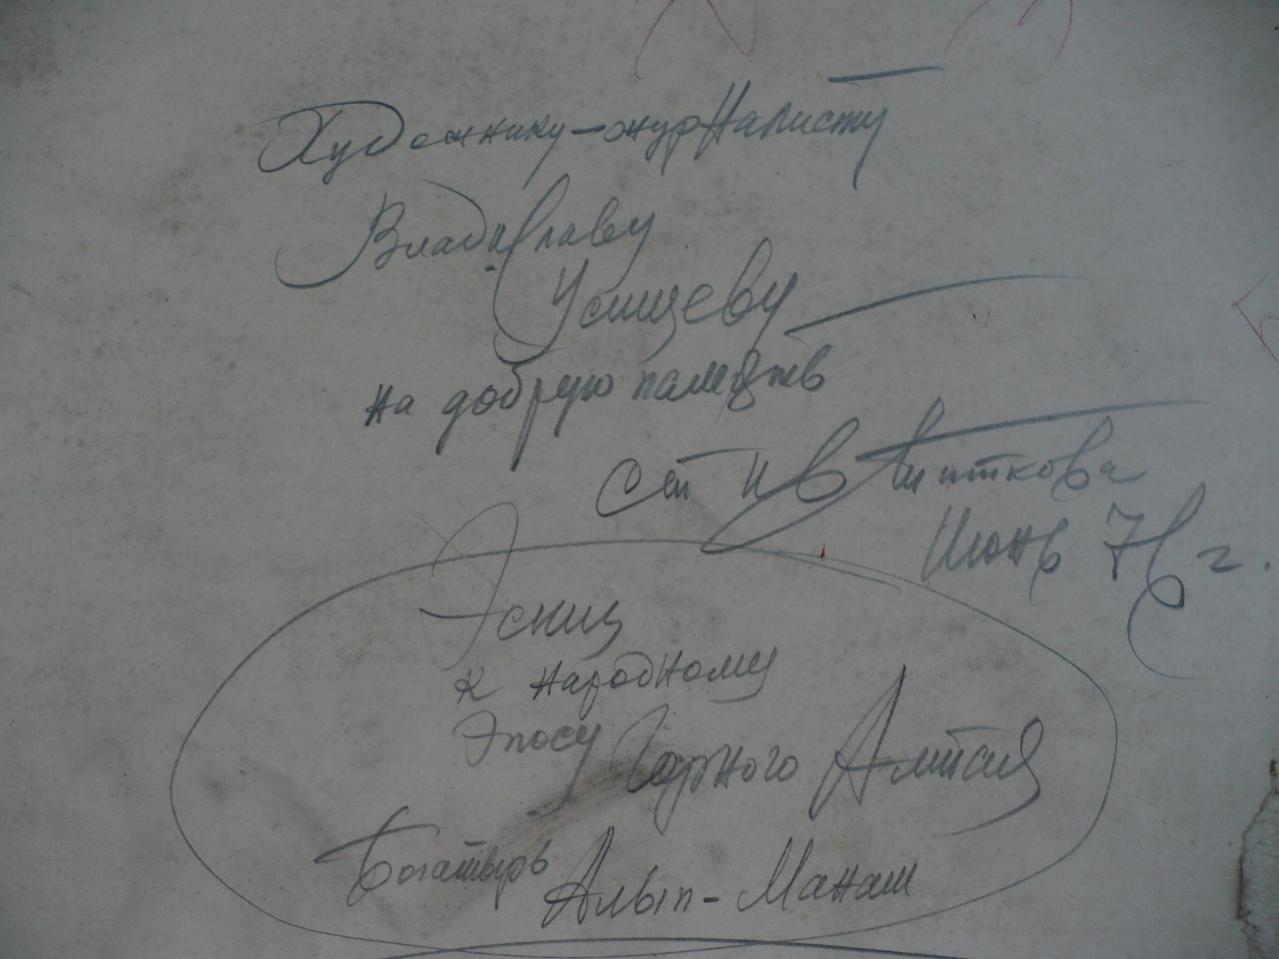 Художнику-журналисту
Владиславу
на добрую память
от
Июнь 78 г.
Эскиз
к народному
эпосу Горного Алтая
Богатырь Алып-Манаш